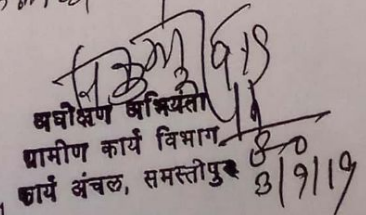 अधीक्षण अभियंता
ग्रामीण कार्य विभाग
कार्य अंचल, समस्तीपुर
3/9/19